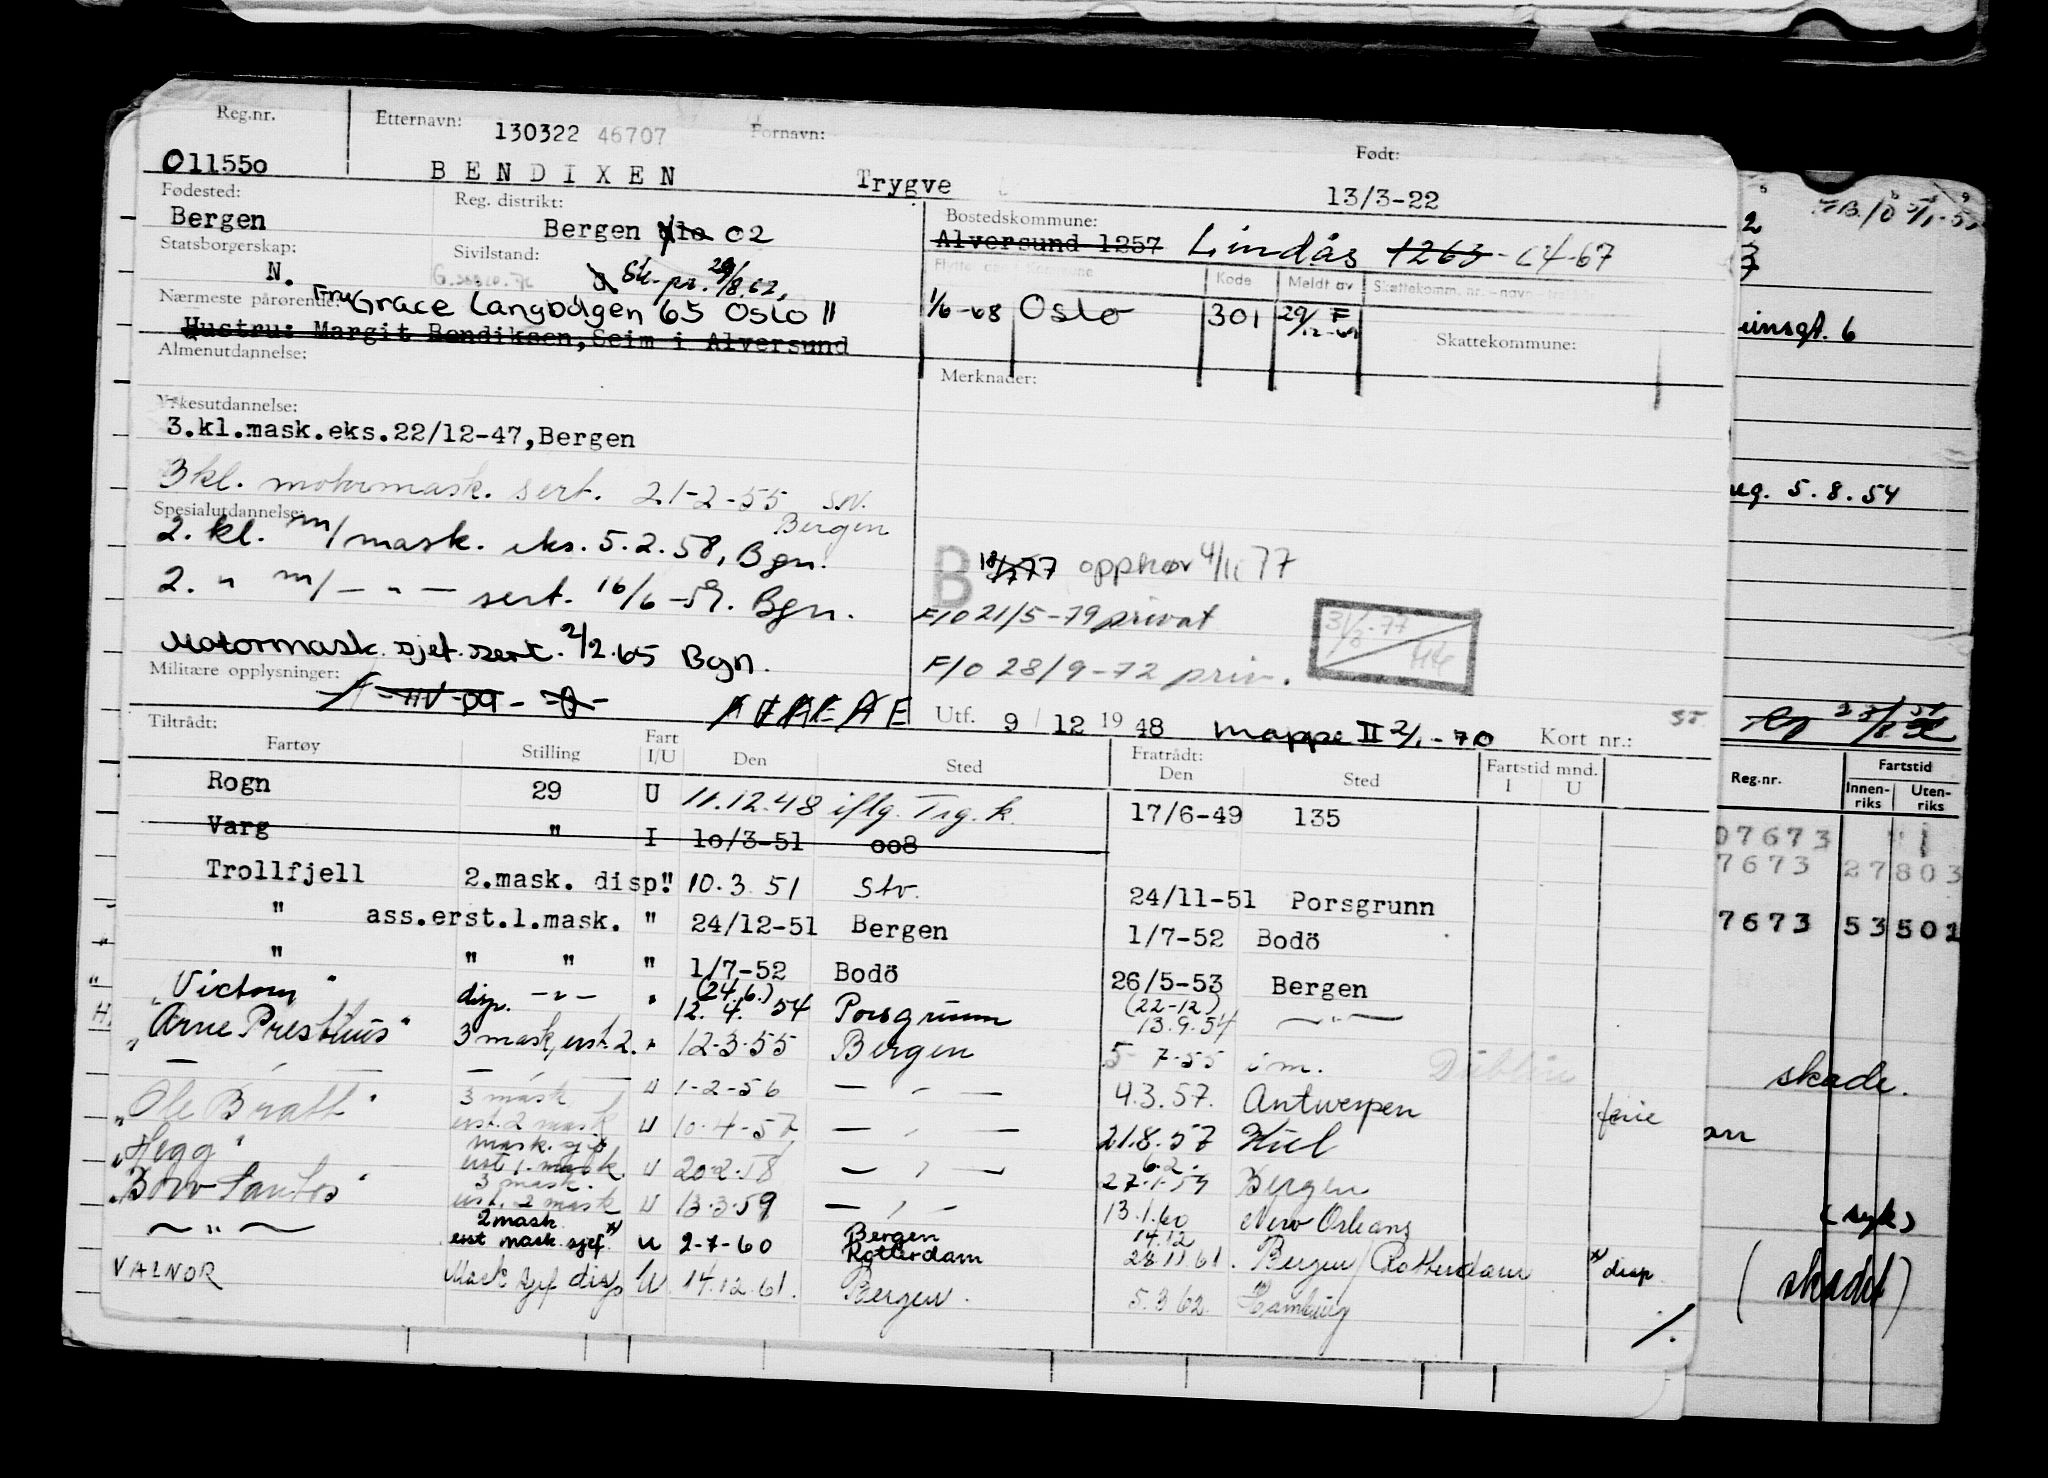 Reg.nr. Etternavn: 130322 46707 Fornavn: Født:
011550 BENDIXEN Trygve 13/3-22
Fødested: Reg. distrikt: Bostedskommune:
Bergen Bergen 02 Alversund 1257 Lindås 1263
Statsborgerskap: Sivilstand:
N. 29/8.62. Kode Meldt av Skattekomm. nr. - navn
Nærmeste pårørende: Fru Grace Langbölgen 65 Oslo 11 1/6-68 Oslo 301
Hustru: Margit Bendiksen, Seim i Alversund Skattekommune:
Almenutdannelse: Merknader:
Yrkesutdannelse:
3.kl.mask.eks.22/12-47, Bergen
3 kl. motormask. sert. 21-2-55 Bergen
Spesialutdannelse:
2. kl. m/mask. eks. 5.2.58, Bgn.
B opphør 4/11 77
2. " m/ — " — sert. 16/6-59. Bgn.
F/0 21/5-79 privat
Motormask. sjef. sert. 2/2.65 Bgn.
F/0 28/9-72 priv.
Militære opplysninger:
Utf. 9 / 12 19 48 Mappe II 2/1-70 Kort nr.:
Tiltrådt: Fratrådt: Fartstid mnd.
Fartøy Stilling Fart I/U Den Sted Den Sted I U
Rogn 29 U 11.12.48 17/6-49 135
Varg " I 10/3-51 008
Trollfjell 2.mask. disp. " 10.3.51 Stv. 24/11-51 Porsgrunn
" ass.erst.1.mask. " 24/12-51 Bergen 1/7-52 Bodö
" " " " 1/7-52 Bodö 26/5-53 Bergen
"Victoria" disp. — " — " (24.6.) 12.4.54 Porsgrunn (22-12) 13.9.54 — " —
"Arne Presthus" 3 mask, erst. 2. " 12-3-55 Bergen 5-7-55 i m. Dublin
— " — — " — U 1-2-56 — " — 4.3.57. Antwerpen
"Ole Bratt" 3 mask erst. 2 mask U 10-4-57 — " — 21.8.57 Kiel ferie
"Hegg" mask. sjef erst 1. mask. U 20-2-58 — " — 6.2. 27-1-59 Bergen
"Bow Santos" 3 mask. erst. 2 mask U 13-3-59 — " — 13.1.60 New Orleans
— " — 2 mask. erst mask. sjef. x) U 2-7-60 Bergen Rotterdam 14.12 28.11.61. Bergen/Rotterdam x) disp.
VALNOR Mask Sjef disp U 14.12.61. Bergen. 5.3.62. Hamburg
./.
5.8.54
Reg.nr. Fartstid
Innenriks Utenriks
07673
7673 27803
7673 53501
skade.
(syk)
(skadet)